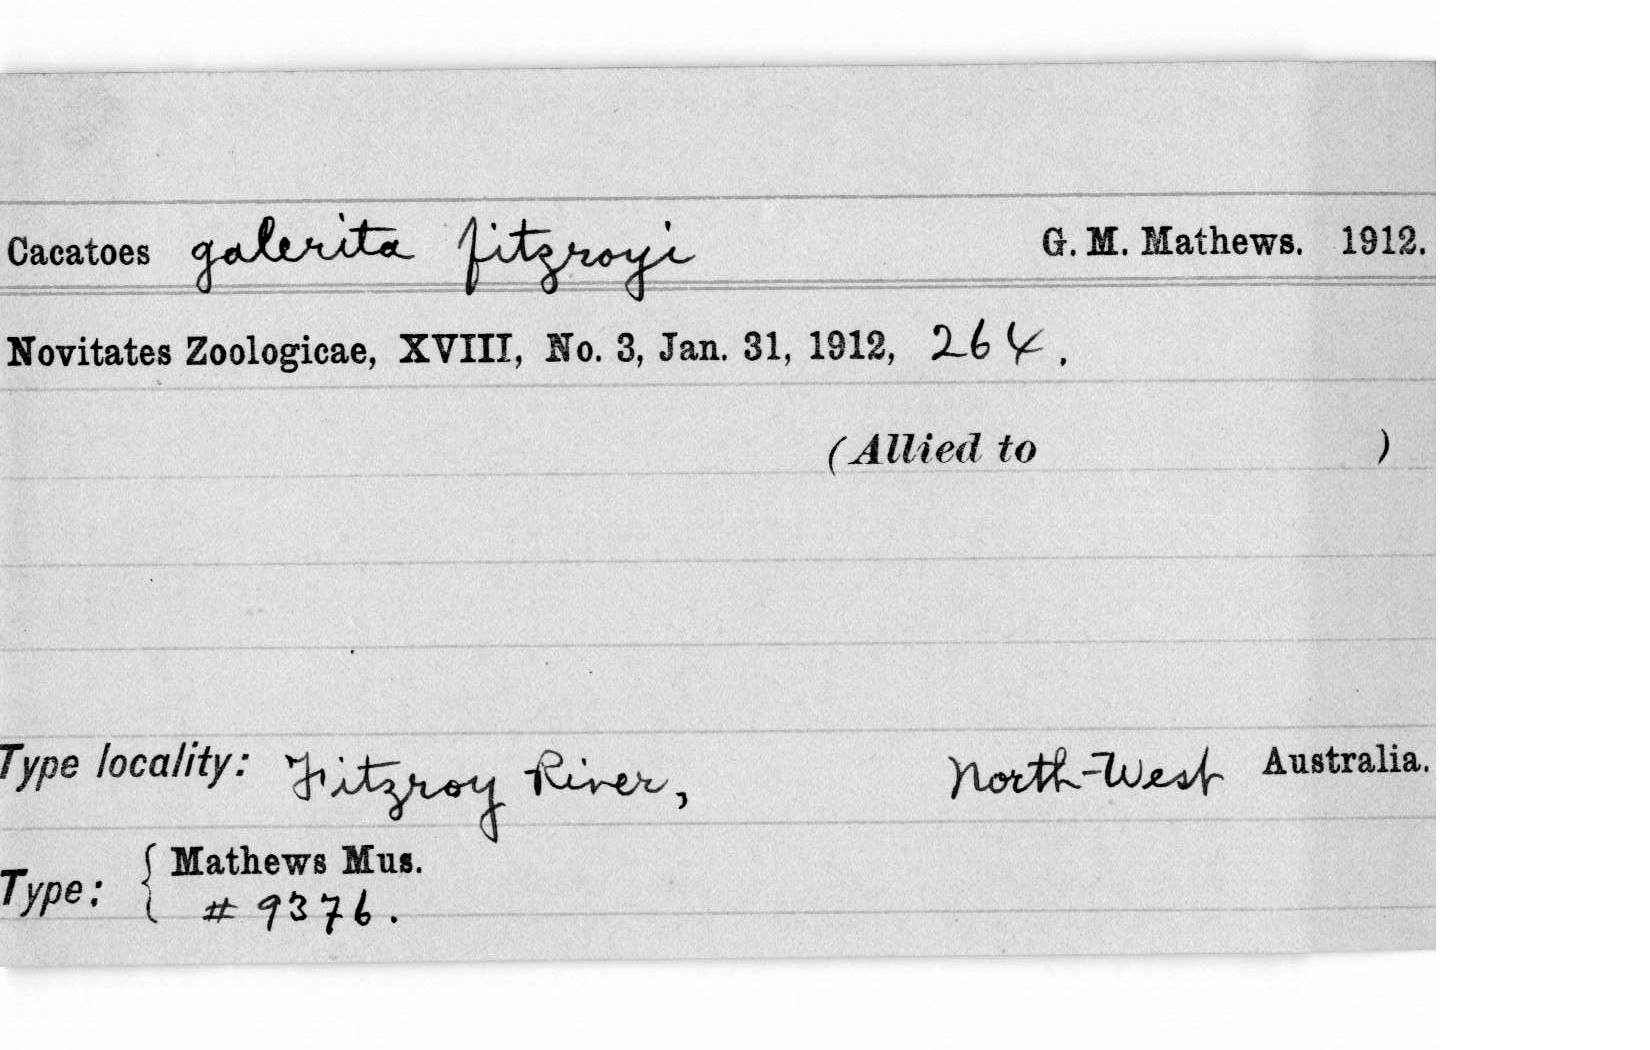 Cacatoes galerita fitzroyi G. M. Mathews. 1912.
Novitates Zoologicae, XVIII, No. 3, Jan. 31, 1912, 264.
(Allied to )
Type locality: Fitzroy River, North-West Australia.
Type: { Mathews Mus.
# 9376.